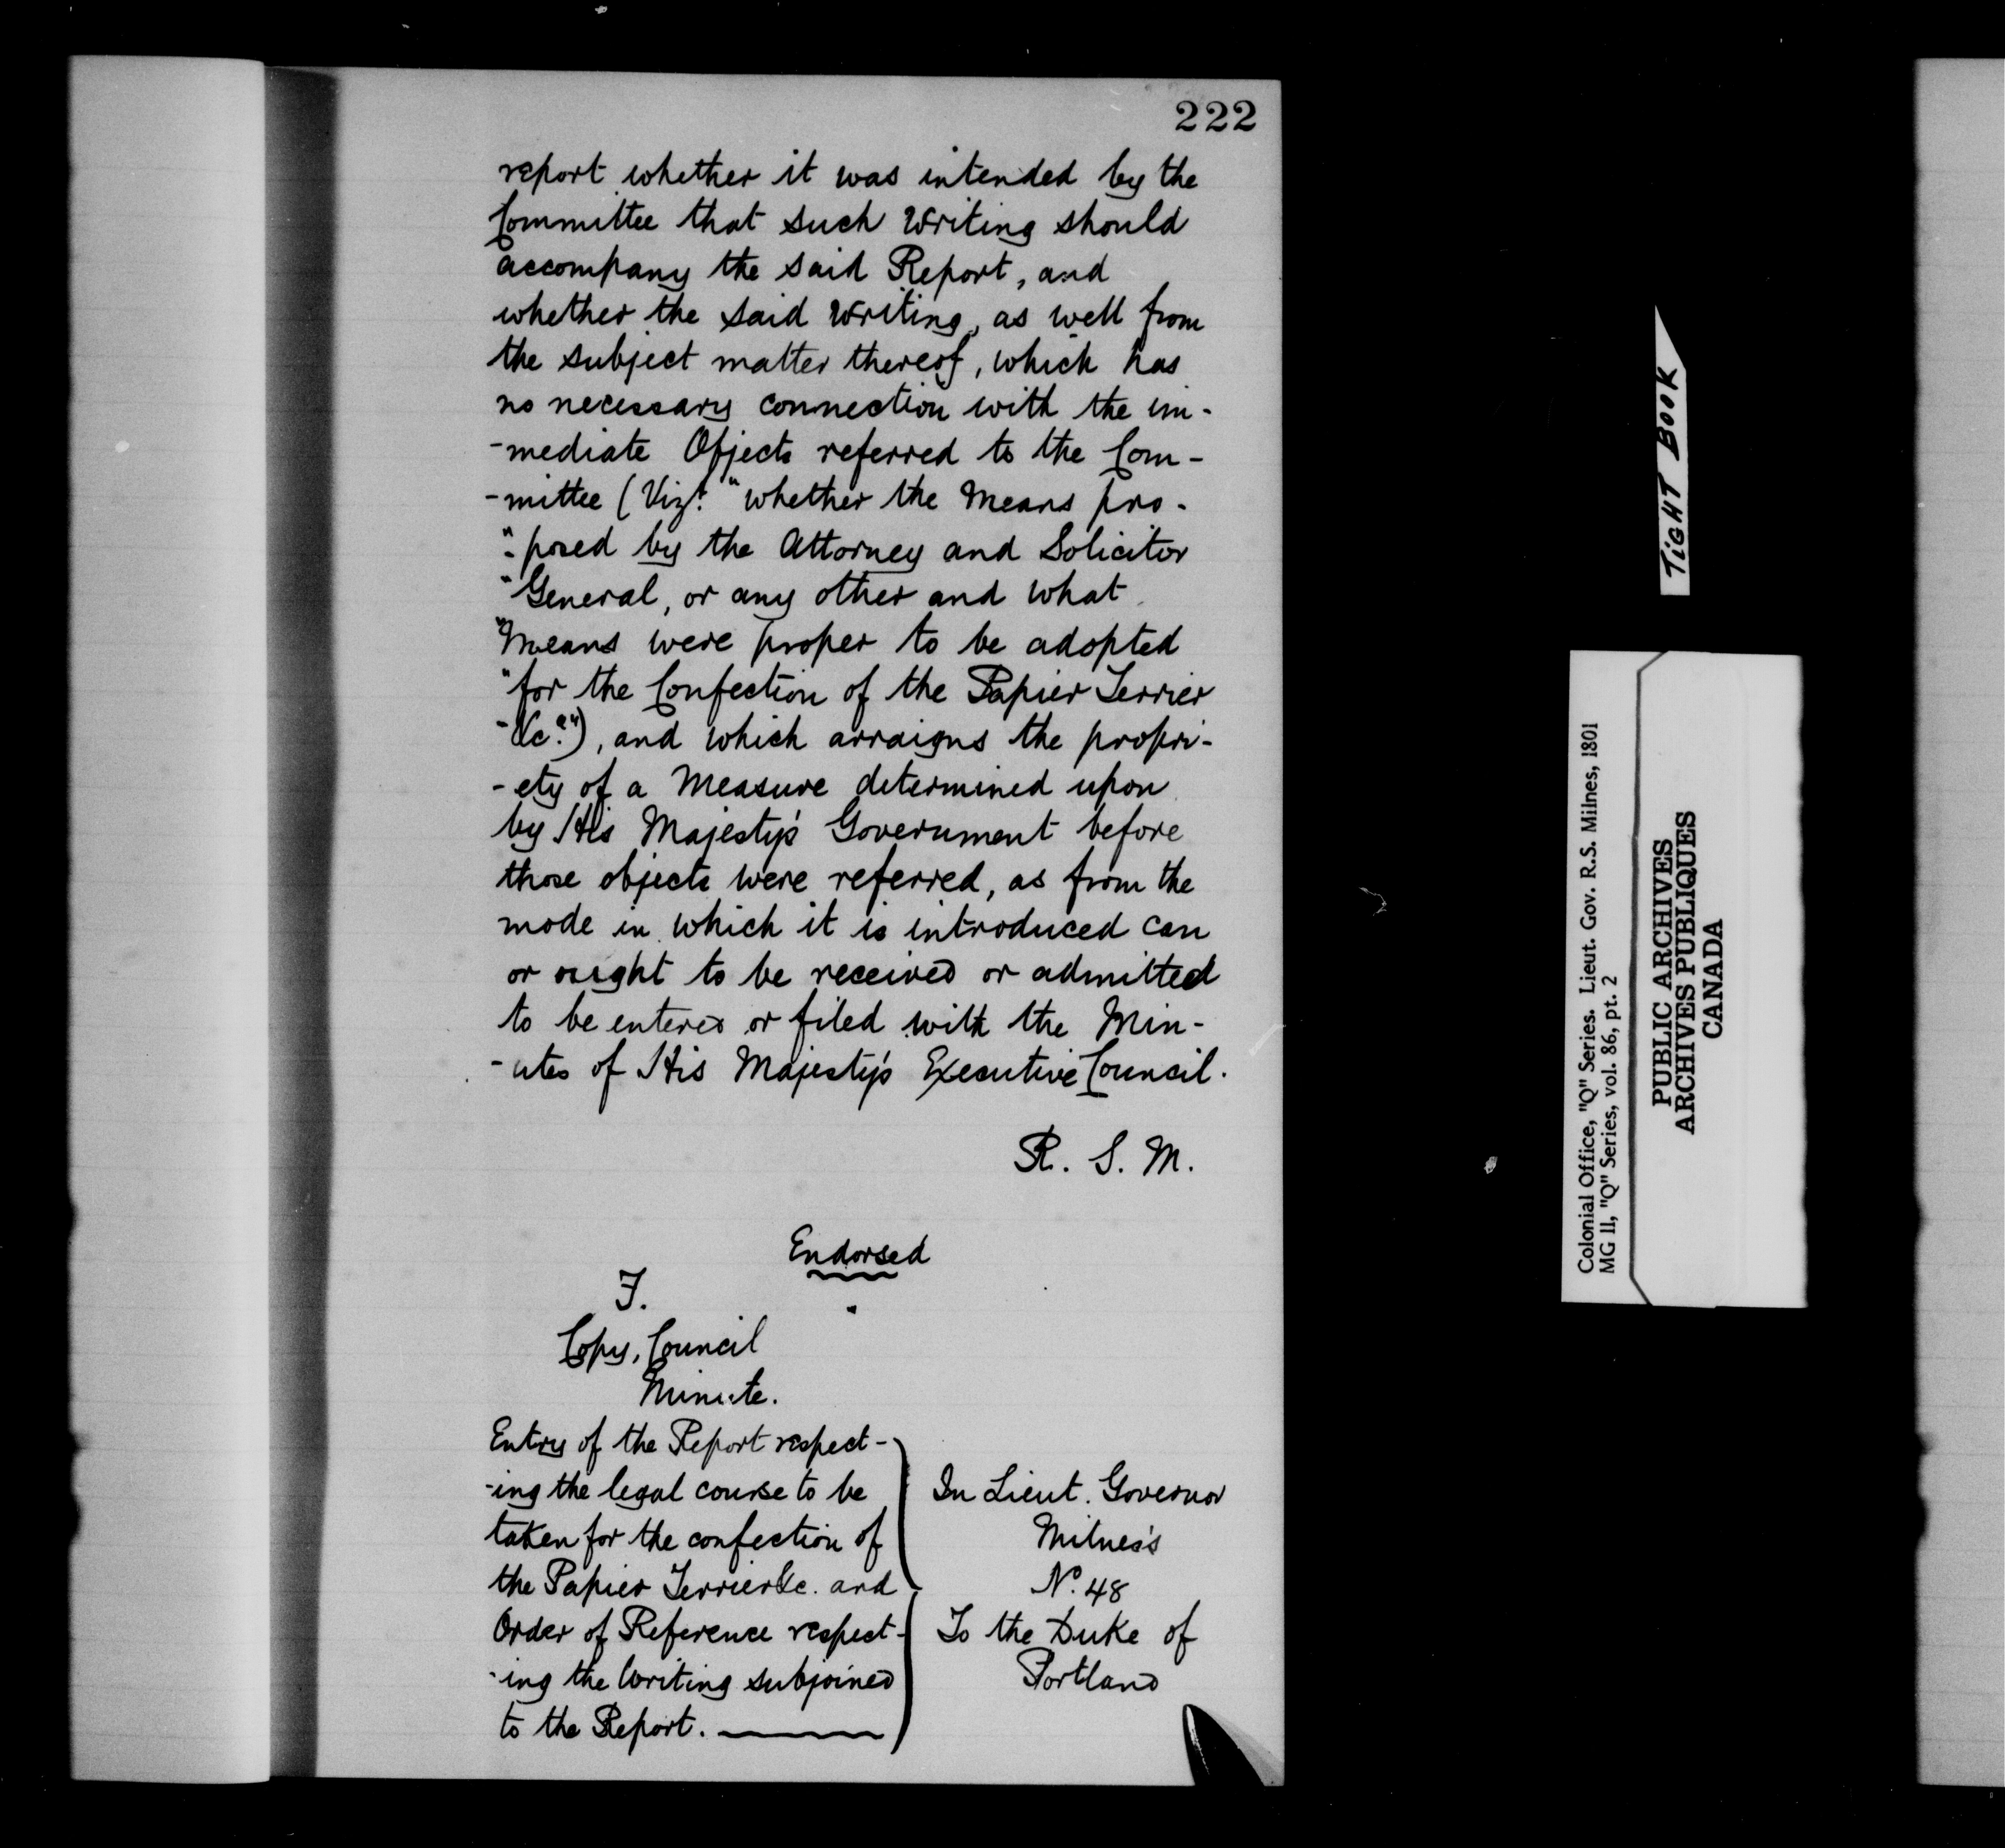 222
report whether it was intended by the
Committee that such Writing should
accompany the said Report, and
whether the said Writing, as well from
the subject matter thereof, which has
no necessary connection with the im-
-mediate Objects referred to the Com-
-mittee (Vizt. "whether the Means pro-
"-posed by the Attorney and Solicitor
"General, or any other and what
"Means were proper to be adopted
"for the Confection of the Papier Terrier
"&c.a"), and which arraigns the propri-
-ety of a Measure determined upon
by His Majesty's Government before
those objects were referred, as from the
mode in which it is introduced can
or ought to be received or admitted
to be entered or filed with the Min-
-utes of His Majesty's Executive Council.
R. S. M.
Endorsed
F.
Copy, Council
Minute.
Entry of the Report respect-
-ing the legal course to be
taken for the confection of
the Papier Terrier &c. and
Order of Reference respect-
-ing the Writing subjoined
to the Report.
In Lieut. Governor
Milnes's
No. 48
To the Duke of
Portland
TIGHT BOOK
Colonial Office, "Q" Series. Lieut. Gov. R.S. Milnes, 1801
MG 11, "Q" Series, vol. 86, pt. 2
PUBLIC ARCHIVES
ARCHIVES PUBLIQUES
CANADA